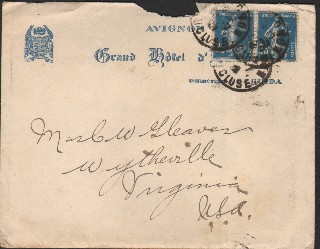 AVIGNON
Grand Hôtel d'
CLUSE
Mrs C W Gleaves
Wytheville
Virginia
USA.